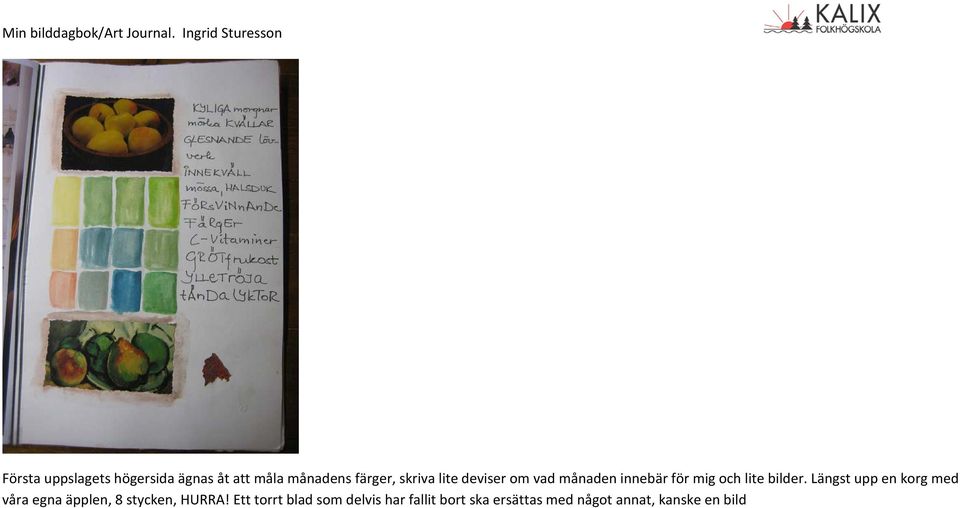 Min bilddagbok/Art Journal. Ingrid Sturesson
KALIX
FOLKHÖGSKOLA
KYLIGA morgnar
mörka KVÄLLAR
GLESNANDE löv-
verk
INNEKVÄLL
mössa, HALSDUK
FÖRSViNNAnDe
FäRgEr
C-Vitaminer
GRÖTfrukost
YLLeTRÖJA
tÄnDa lYKTOR
Första uppslagets högersida ägnas åt att måla månadens färger, skriva lite deviser om vad månaden innebär för mig och lite bilder. Längst upp en korg med
våra egna äpplen, 8 stycken, HURRA! Ett torrt blad som delvis har fallit bort ska ersättas med något annat, kanske en bild